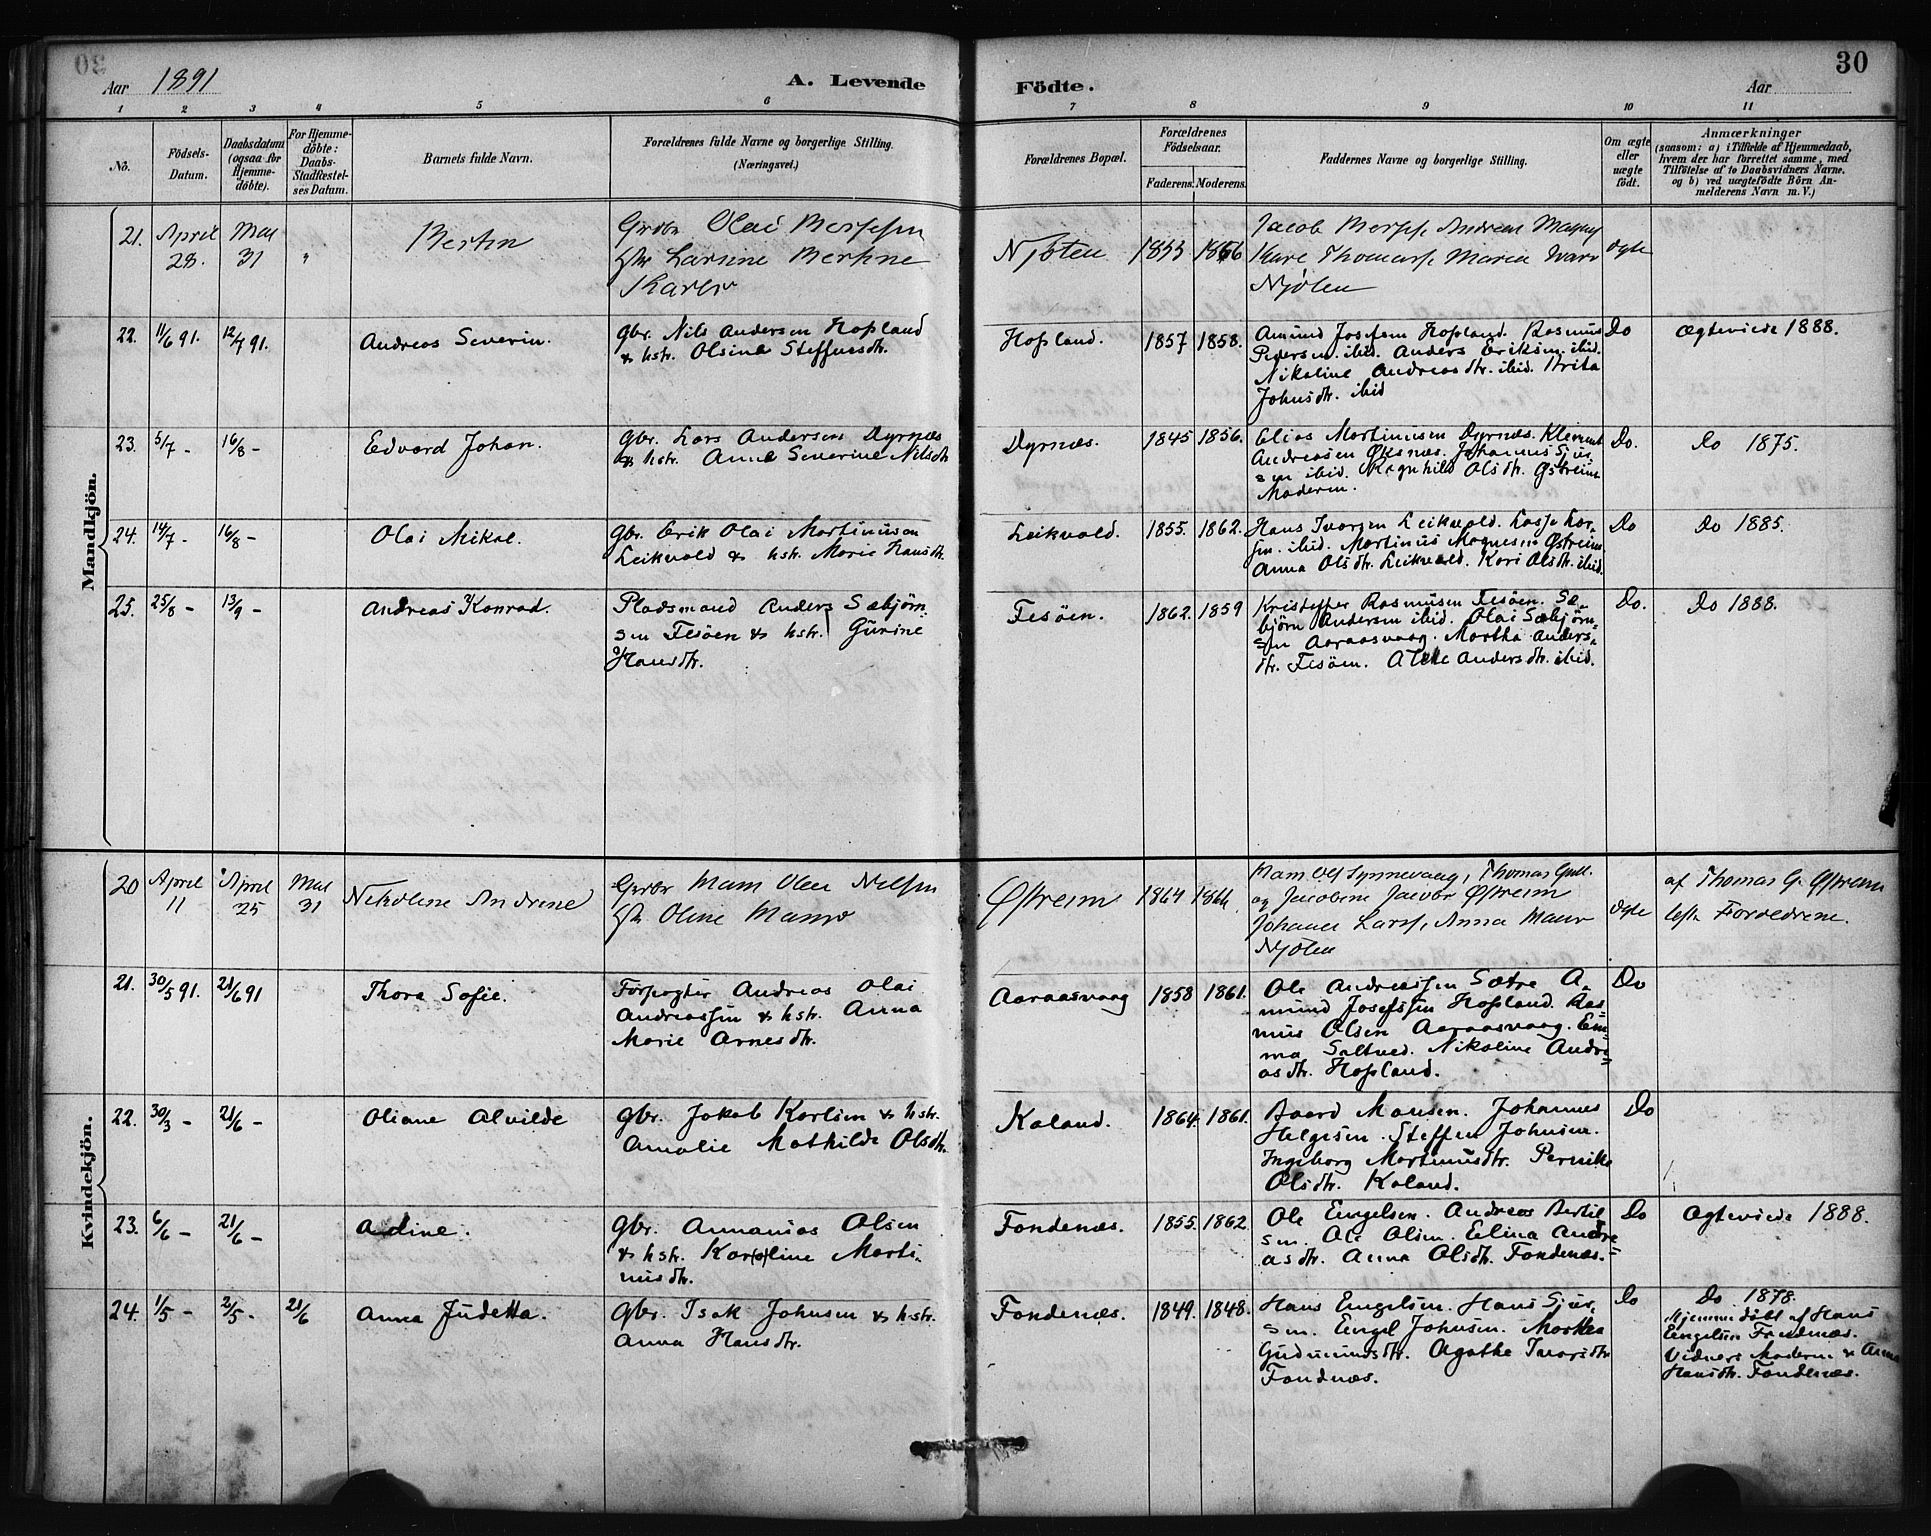 30
Aar 1891
A. Levende
Födte.
Aar
1 2 3 4 5 6 7 8 9 10 11
No.
Födsels-Datum.
Daabsdatum (ogsaa for Hjemmedöbte).
For Hjemmedöbte: Daabs-Stadfæstelses Datum.
Barnets fulde Navn.
Forældrenes fulde Navne og borgerlige Stilling.
(Næringsvei.)
Forældrenes Bopæl.
Forældrenes Födselsaar.
Faderens. Moderens.
Faddernes Navne og borgerlige Stilling.
Om ægte eller uægte födt.
Anmærkninger
(saasom: a) i Tilfælde af Hjemmedaab,
hvem der har forrettet samme, med
Tilföielse af to Daabsvidners Navne.
og b) ved uægtefödte Börn An-
melderens Navn m. V.)
Mandkjön.
21. April 28. Mai 31 "
Bertin
Olai
Larsine Bertine
1853 1866
Jacob
ægte
22. 11/6 91. 12/7 91.
Andreas Severin.
gbr. Nils Andersen Hopland
& hstr. Olsine Steffensdtr.
Hopland.
1857 1858.
Amund Josefsen Hopland. Rasmus
Pedersen. ibid. Anders Eriksen. ibid.
Nikoline Andreasdtr. ibid. Brita
Johnsdtr. ibid
Do
Ægteviede 1888.
23. 5/7 - 16/8 -
Edvard Johan.
gbr. Lars Andersen Dyrnæs
& hstr. Anne Severine Nilsdtr
Dyrnæs.
1845 1856.
Elias Martinusen Dyrnæs. Klement
Andreasen Øksnæs. Johannes Sjur-
sen ibid. Ragnhild Olsdtr. Østreim
Moderen.
Do.
Do 1875.
24. 14/7 - 16/8 -
Olai Mikal.
gbr. Erik Olai Martinusen
Leikvold & hstr. Marie Hansdtr.
Leikvold.
1855. 1862.
Hans Ivarsen Leikvold. Lasse Lar-
sen. ibid. Martinus Magnesen Østreim
Anna Olsdtr. Leikvold. Kari Olsdtr. ibid.
Do
Do 1885.
25. 25/8 - 13/9 -
Andreas Konrad.
Pladsmand Anders Sæbjørn-
sen Fesøen & hstr. Gurine
Hansdtr.
Fesøen.
1862. 1859
Kristoffer Rasmusen Fesøen. Sæ-
bjørn Andersen ibid. Olai Sæbjørn-
sen Aaraasvaag. Martha Anders-
dtr. Fesøen. Andersdtr. ibid.
Do.
Do 1888.
Kvindekjön.
20 April 11 April 25 Mai 31
Nikoline Andrine
Oline
Østreim
1864
Johannes Larss. Anna
ægte
af Thomas G. Østreim
Forældrene.
21. 30/5 91. 21/6 91
Thora Sofie.
Forpagter Andreas Olai
Andreassen & hstr. Anna
Marie Arnesdtr.
Aaraasvaag
1858 1861.
Ole Andreassen Sætre A-
mund Josefssen Hopland. Ras-
mus Olsen Aaraasvaag. Em-
ma Nikoline Andre-
asdtr. Hopland.
Do
22. 30/3 - 21/6 -
Oliane Alvilde
gbr. Jakob Karlsen & hstr.
Amalie Mathilde Olsdtr.
Kaland.
1864. 1861.
Baard Monsen. Johannes
Helgesen. Steffen Johnsen.
Ingeborg Martinusdtr. Pernike
Olsdtr. Kaland.
Do
23. 6/6 - 21/6 -
Adine.
gbr. Annanias Olsen
& hstr. Karoline Marti-
nusdtr.
Fondenæs.
1855. 1862.
Ole Engelsen. Andreas Bertil-
sen. Ole Olsen. Elina Andre-
asdtr. Anna Olsdtr. Fondenæs.
Do
Ægteviede 1888.
24. 1/5 - 2/5 - 21/6
Anna Judetta.
gbr. Isak Johnsen & hstr.
Anna Hansdtr.
Fondenæs.
1849. 1848.
Hans Engelsen. Hans Sjur-
sen. Engel Johnsen. Marthea
Gudmundsdtr. Agathe Ivarsdtr
Fondnæs.
Do
Do 1878.
Hjemmedöbt af Hans
Engelsen Fondnæs.
Vidner: Moderen & Anna
Hansdtr. Fondenæs.